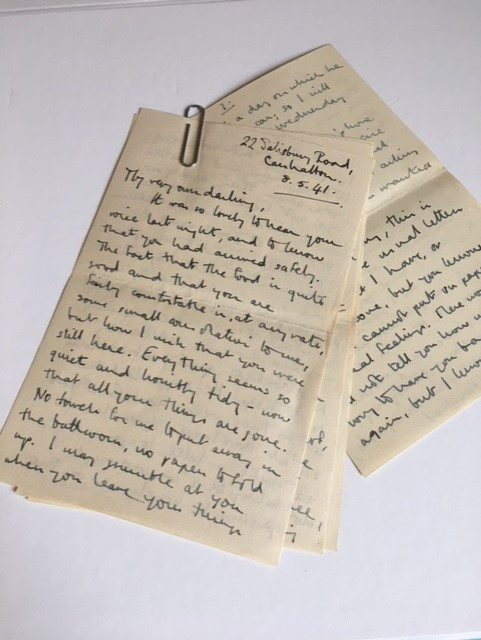 22 Salisbury Road,
Carshalton.
8.5.41.
My very own darling,
It was so lovely to hear your
voice last night, and to know
that you had arrived safely.
The fact that the food is quite
good and that you are
fairly comfortable is, at any rate,
some small consolation to me,
but how I wish that you were
still here. Everything seems so
quiet and horribly tidy - now
that all your things are gone.
No towels for me to put away in
the bathroom, no papers to fold
up. I may grumble at you
when you leave your things
3:
a day on which he
car; so I will
Wednesday
have
are
asking
wanted
this is
usual letters
I have, or
love, but you know
cannot put on paper
real feelings. Mere words
not tell you how
to have you back
again, but I know